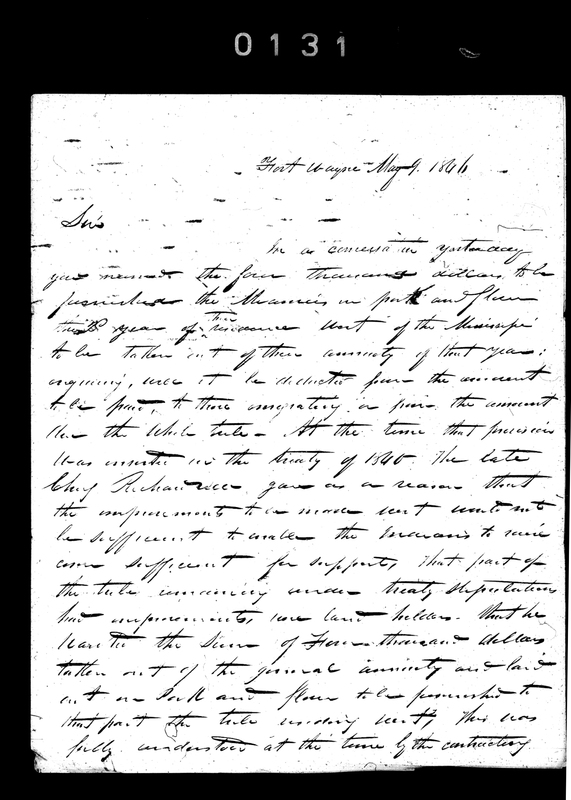 0131
Fort Wayne May 9. 1846
Sir
In a conversation yesterday
you named the four thousand dollars to be
furnished the Miamies in pork and flour
the year of their residence West of the Mississippi
to be taken out of their annuity of that year:
enquiring, was it to be deducted from the amount
to be paid, to those emigrating or from the amount
due the whole tribe - At the time that provision
was inserted in the treaty of 1840. The late
Chief Richardville gave as a reason that
the improvements to be made west would not
be sufficient to enable the Indians to raise
corn sufficient for support, that part of
the tribe remaining under treaty stipulations
had improvements, were land holders. that he
wanted the sum of Four thousand dollars
taken out of the general annuity and laid
out in Pork and flour to be furnished to
that part the tribe residing west, This was
fully understood at the time by the contracting